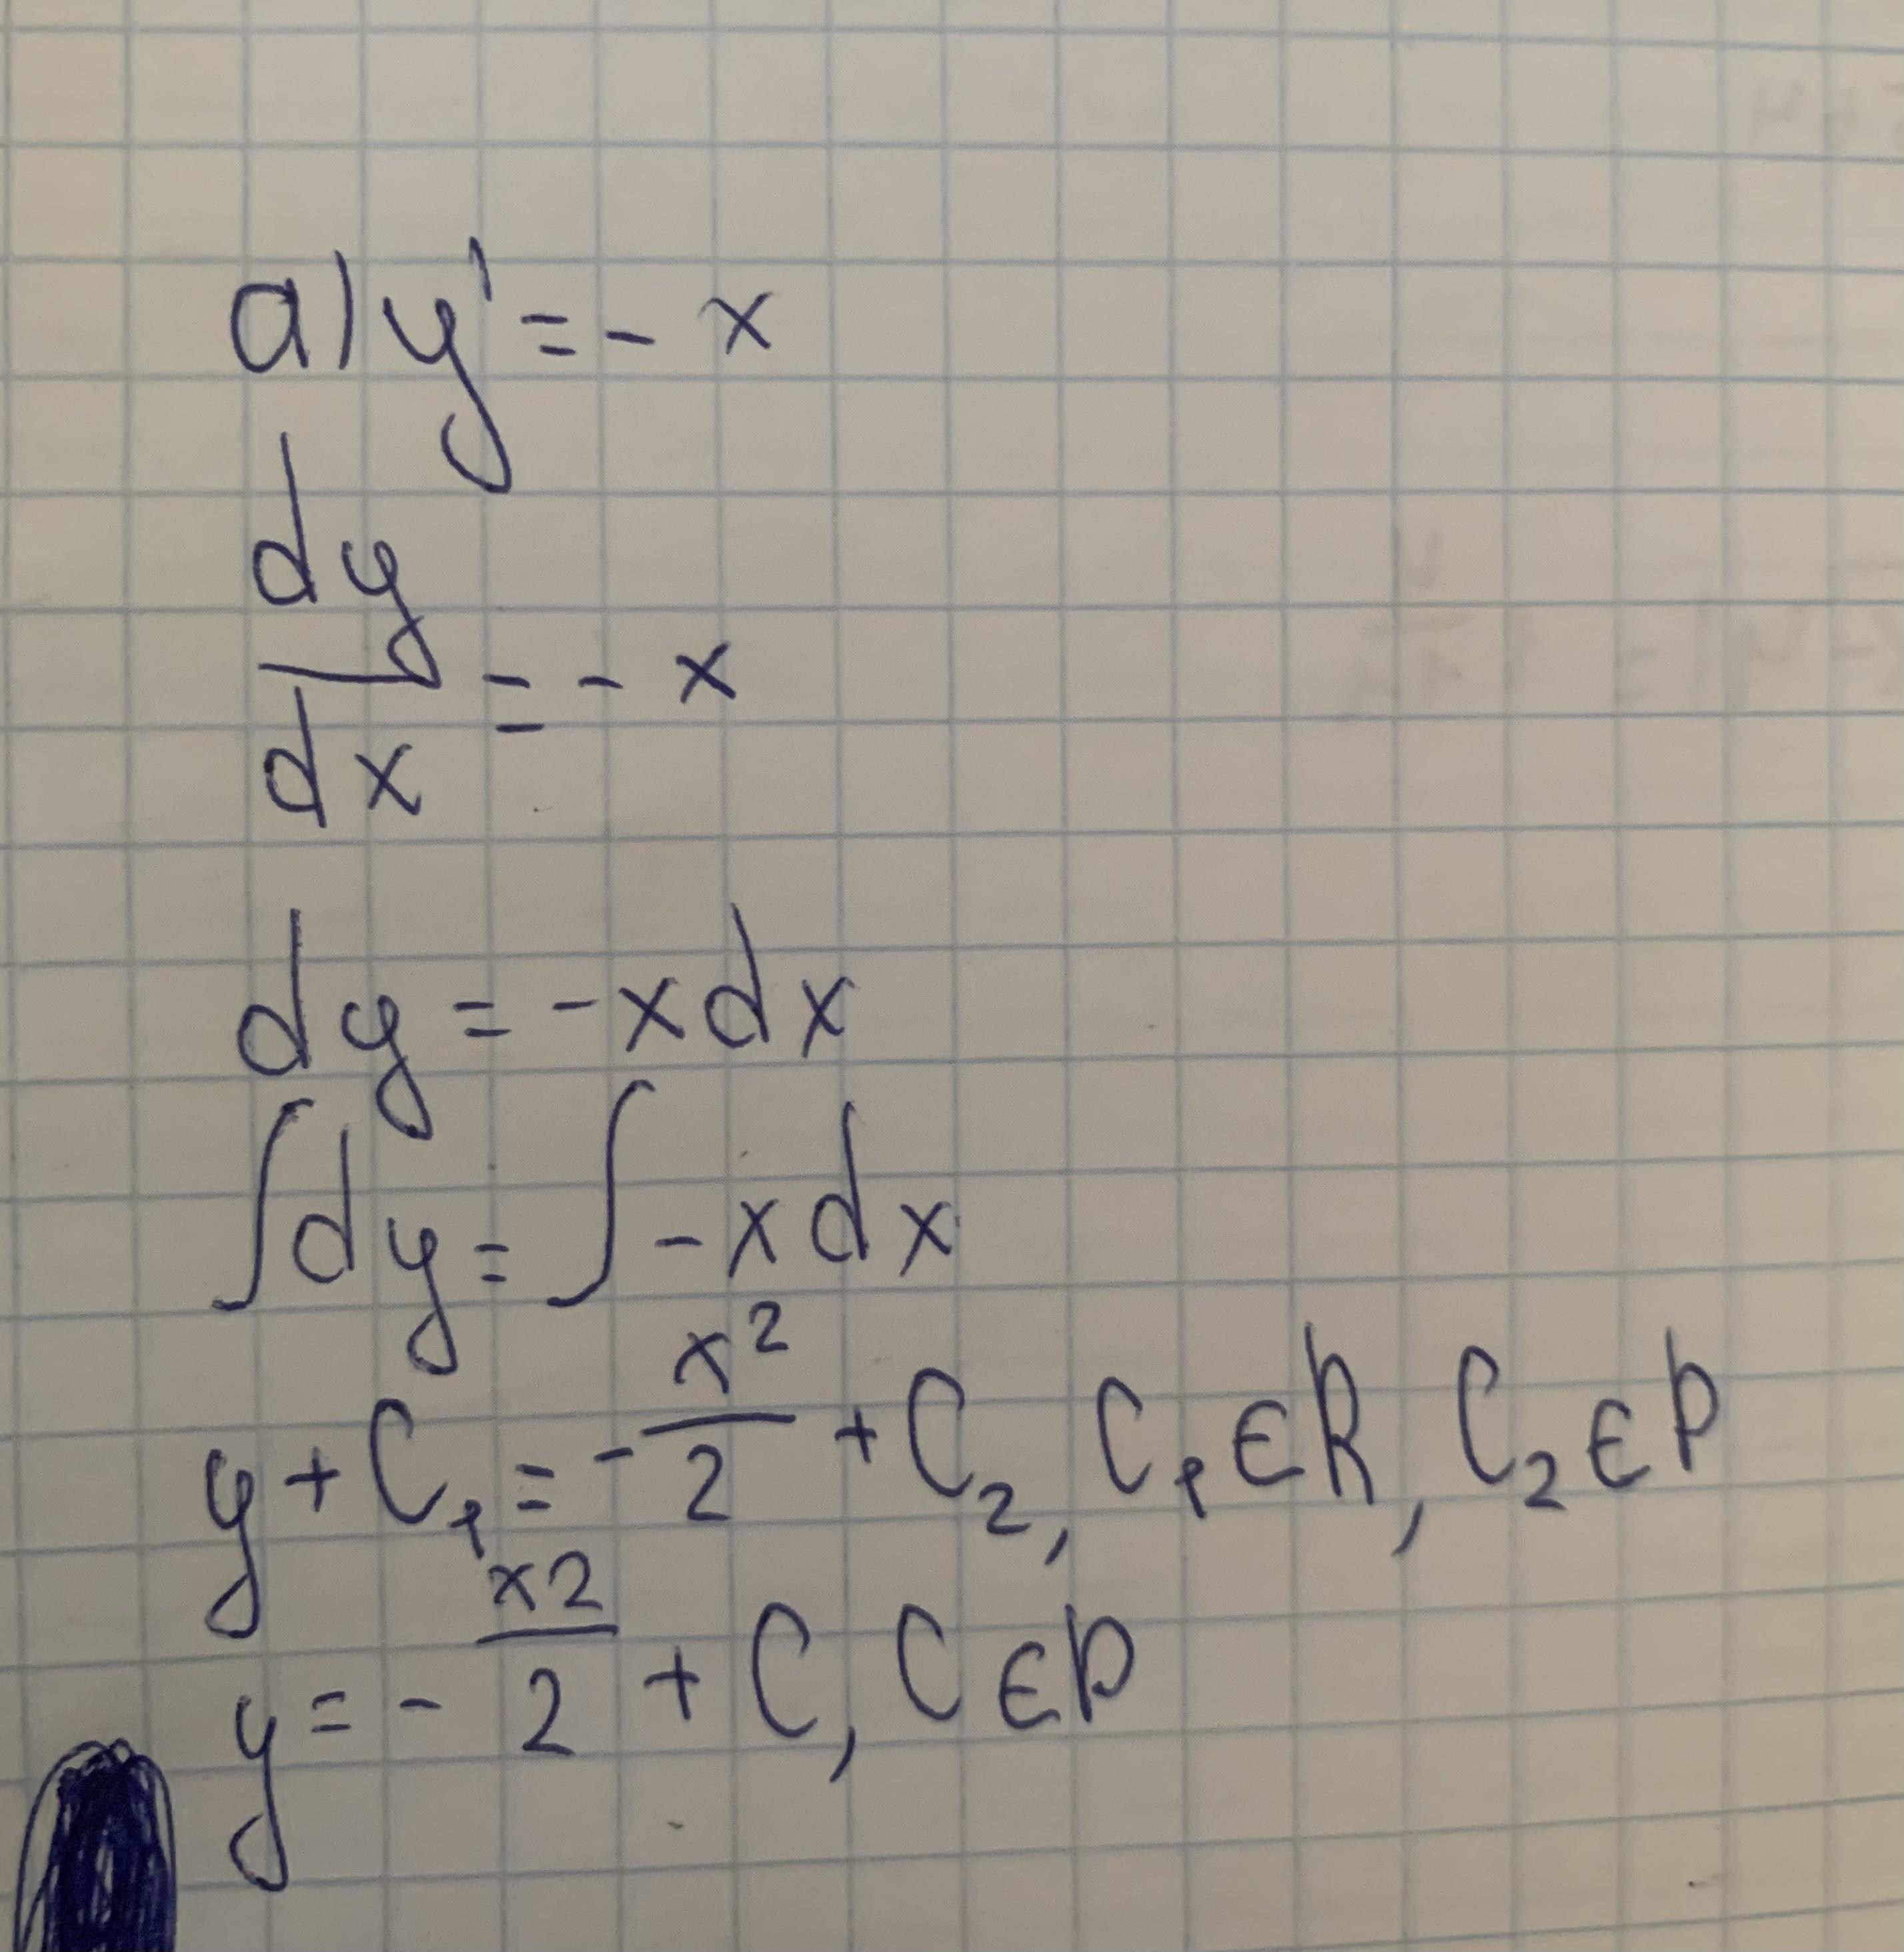 a) y' = - x
dy/dx = - x
dy = - x dx
∫ dy = ∫ - x dx
y + C₁ = - x²/2 + C₂, C₁ ∈ R, C₂ ∈ R
y = - x2/2 + C, C ∈ R